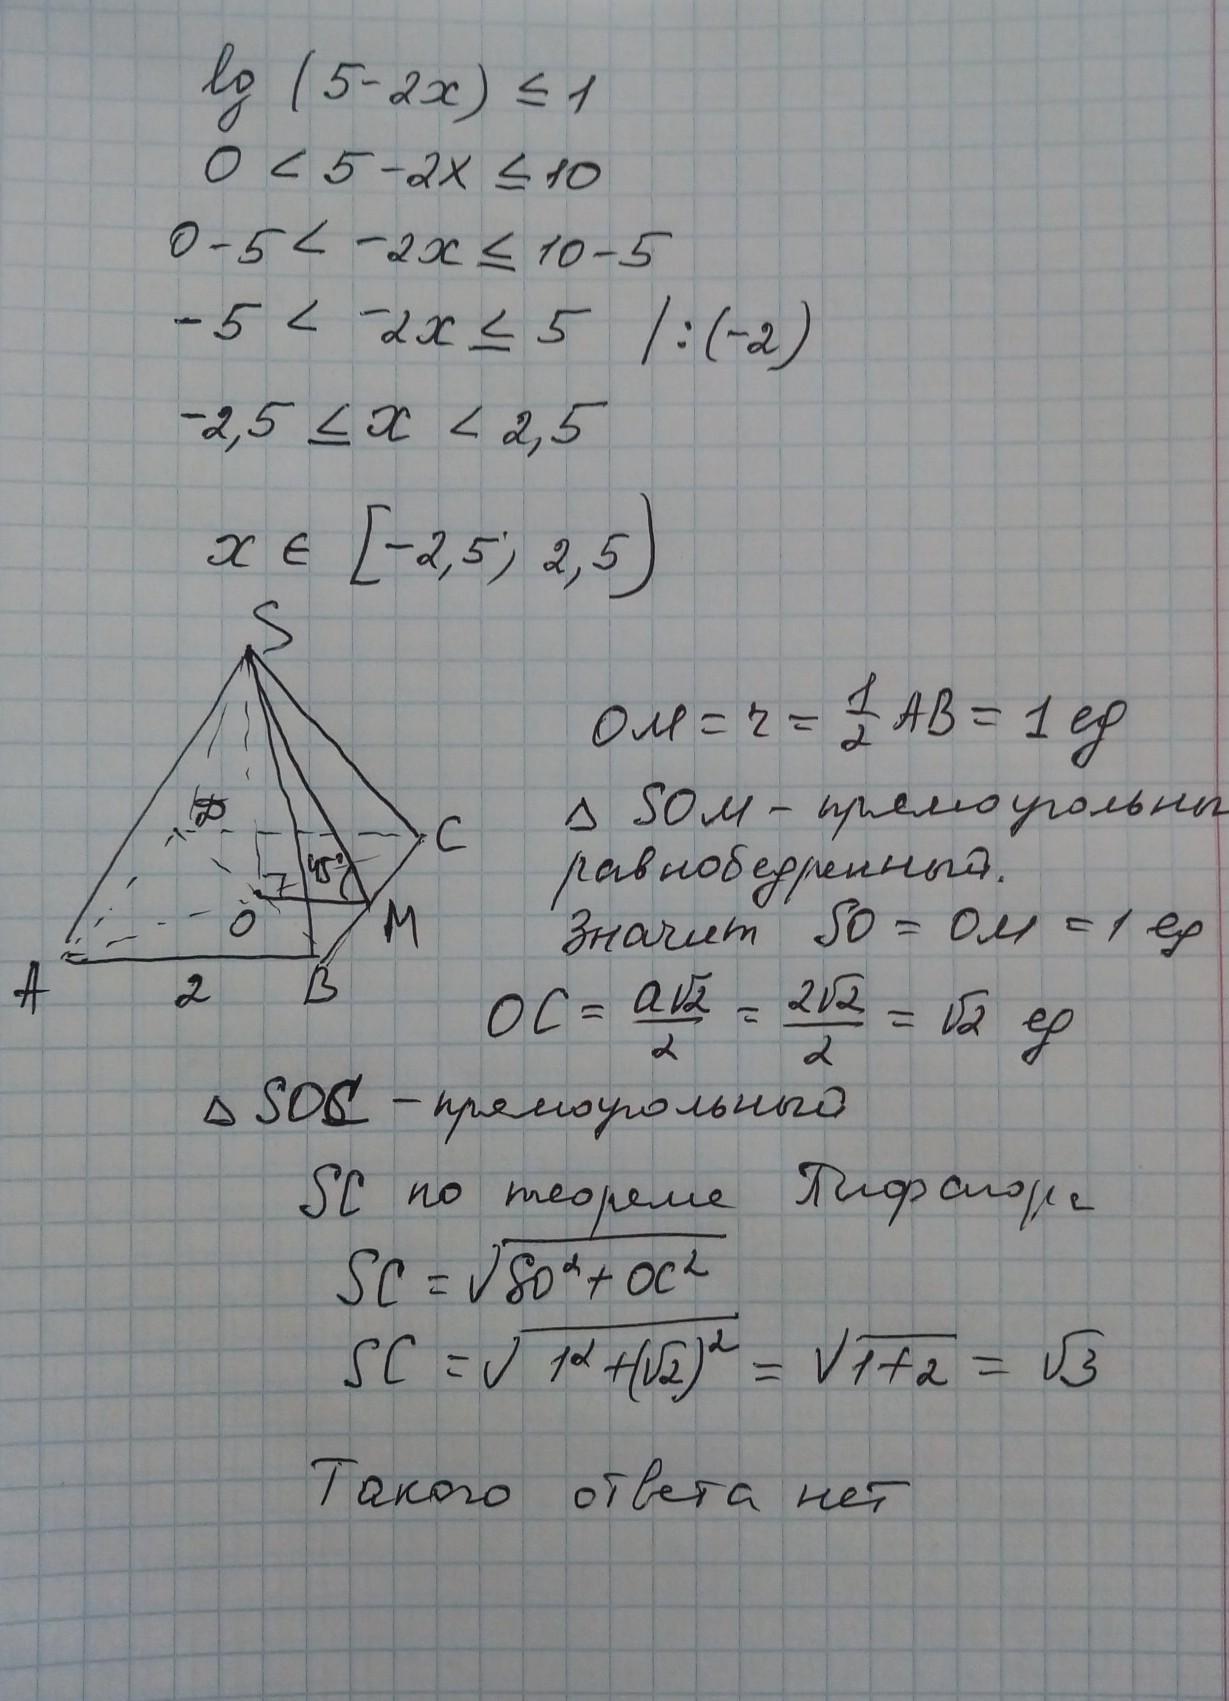 lg (5-2x) ≤ 1
0 < 5 - 2x ≤ 10
0 - 5 < -2x ≤ 10 - 5
-5 < -2x ≤ 5 /:(-2)
-2,5 ≤ x < 2,5
x ∈ [-2,5; 2,5)
S
D
C
45°
O
M
A
2
B
OM = r = 1/2 AB = 1 ед
△ SOM - прямоугольны
равнобедренный.
Значит SO = OM = 1 ед
OC = a√2/2 = 2√2/2 = √2 ед
△ SOC - прямоугольный
SC по теореме Пифагора
SC = √(SO² + OC²)
SC = √(1² + (√2)²) = √(1+2) = √3
Такого ответа нет